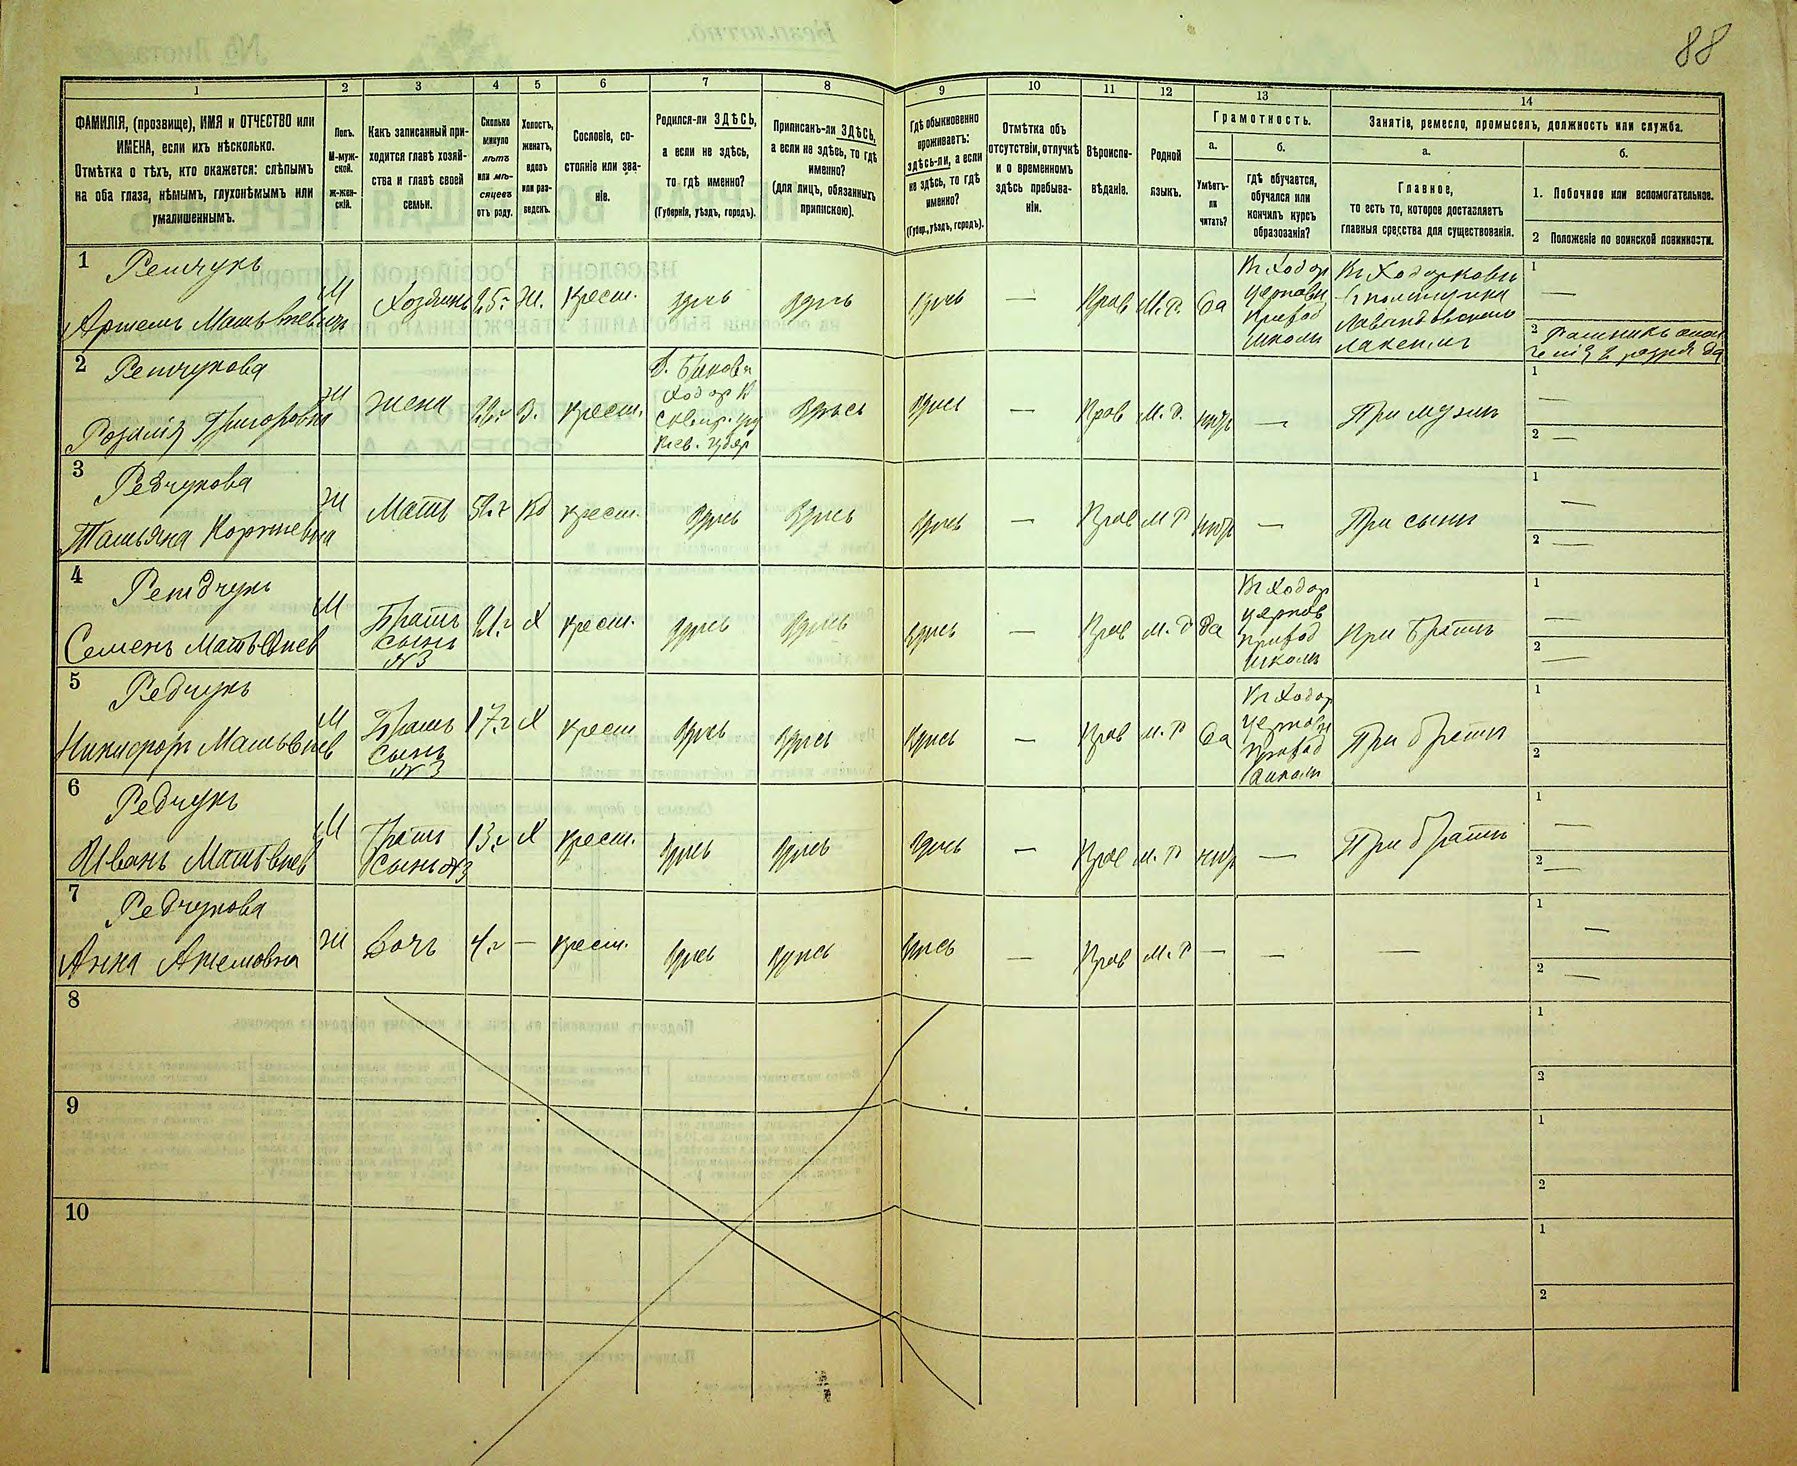 88
1 2 3 4 5 6 7 8 9 10 11 12 13 14
ФАМИЛІЯ, (прозвище), ИМЯ и ОТЧЕСТВО или
ИМЕНА, если ихъ нѣсколько.
Отмѣтка о тѣхъ, кто окажется: слѣпымъ
на оба глаза, нѣмымъ, глухонѣмымъ или
умалишеннымъ.
Полъ.
М-муж-
ской.
ж-жен-
скій.
Какъ записанный при-
ходится главѣ хозяй-
ства и главѣ своей
семьи.
Сколько
минуло
лѣтъ
или мѣ-
сяцевъ
отъ роду.
Холостъ,
женатъ,
вдовъ
или раз-
веденъ.
Сословіе, со-
стояніе или зва-
ніе.
Родился-ли ЗДѢСЬ,
а если не здѣсь,
то гдѣ именно?
(Губернія, уѣздъ, городъ).
Приписанъ-ли ЗДѢСЬ,
а если не здѣсь, то гдѣ
именно?
(для лицъ, обязанныхъ
припискою).
Гдѣ обыкновенно
проживаетъ:
здѣсь-ли, а если
не здѣсь, то гдѣ
именно?
(Губер., уѣздъ, городъ).
Отмѣтка объ
отсутствіи, отлучкѣ
и о временномъ
здѣсь пребыва-
ніи.
Вѣроиспо-
вѣданіе.
Родной
языкъ.
Грамотность.
а.
Умѣетъ-
ли
читать?
б.
гдѣ обучается,
обучался или
кончилъ курсъ
образованія?
Занятіе, ремесло, промыселъ, должность или служба.
а.
Главное,
то есть то, которое доставляетъ
главныя средства для существованія.
б.
1. Побочное или вспомогательное.
2 Положеніе по воинской повинности.
1 Артемъ Матвѣевичъ М Хозяинъ 25 г Ж. Крест. здѣсь здѣсь здѣсь — Прав М. Р. да
Въ Ходор
церковн
приход
школѣ
Въ Ходорковѣ
1 —
2
2 Розалія Григоровна Ж жена 22 г З. крест. здѣсь здѣсь — Прав М. Р. нѣтъ — При мужѣ
Ходорк
Сквир. уѣз
Кіев. губер
1 —
2 —
3 Редчукова
Татьяна Ж Мать г Вд крест. здѣсь здѣсь здѣсь — Прав М Р нѣтъ — При сынѣ
1 —
2 —
4
Семенъ Матвѣев М Братъ 21 г Х крест. здѣсь здѣсь здѣсь — Прав М. Р да При братѣ
сынъ
№3
Въ Ходор
церков
приход
школѣ
1 —
2 —
5 Редчукъ
Никифоръ Матвѣев М Братъ 17 г Х крест здѣсь здѣсь здѣсь — Прав М. Р да При братѣ
сынъ
№3
Въ Ходор
церковн
приход
школѣ
1 —
2
6 Редчукъ
Иванъ Матвѣев М Братъ 13 г Х крест. здѣсь здѣсь здѣсь — Прав М. Р нѣтъ — При братѣ
сынъ №3
1 —
2 —
7 Редчукова
Анна Ж Дочь 4 г — крест. здѣсь здѣсь здѣсь — Прав М. Р — — —
1 —
2 —
8
1
2
9
1
2
10
1
2